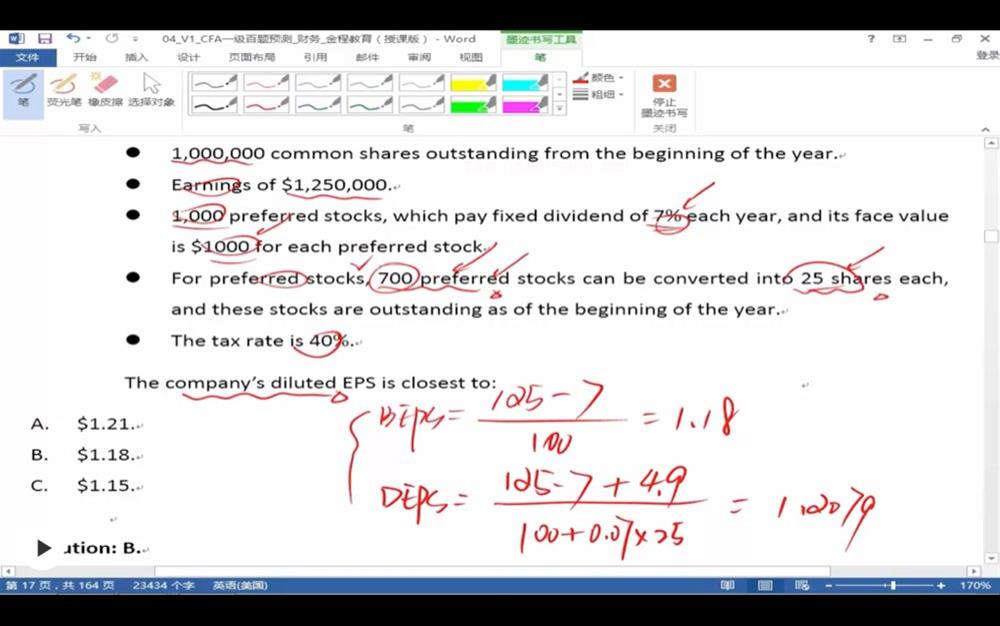 04_V1_CFA一级百题预测_财务_金程教育（授课版） - Word
墨迹书写工具
登录
文件 开始 插入 设计 页面布局 引用 邮件 审阅 视图 笔
笔 荧光笔 橡皮擦 选择对象
颜色
粗细
停止
墨迹书写
写入 笔 关闭
1,000,000 common shares outstanding from the beginning of the year.
Earnings of $1,250,000.
1,000 preferred stocks, which pay fixed dividend of 7% each year, and its face value
is $1000 for each preferred stock.
For preferred stocks, 700 preferred stocks can be converted into 25 shares each,
and these stocks are outstanding as of the beginning of the year.
The tax rate is 40%.
The company's diluted EPS is closest to:
A. $1.21.
B. $1.18.
C. $1.15.
BEPS = 125-7 / 100 = 1.18
DEPS = 125-7+4.9 / 100+0.07×25 = 1.2079
ution: B.
第 17 页，共 164 页 23434 个字 英语(美国) 170%